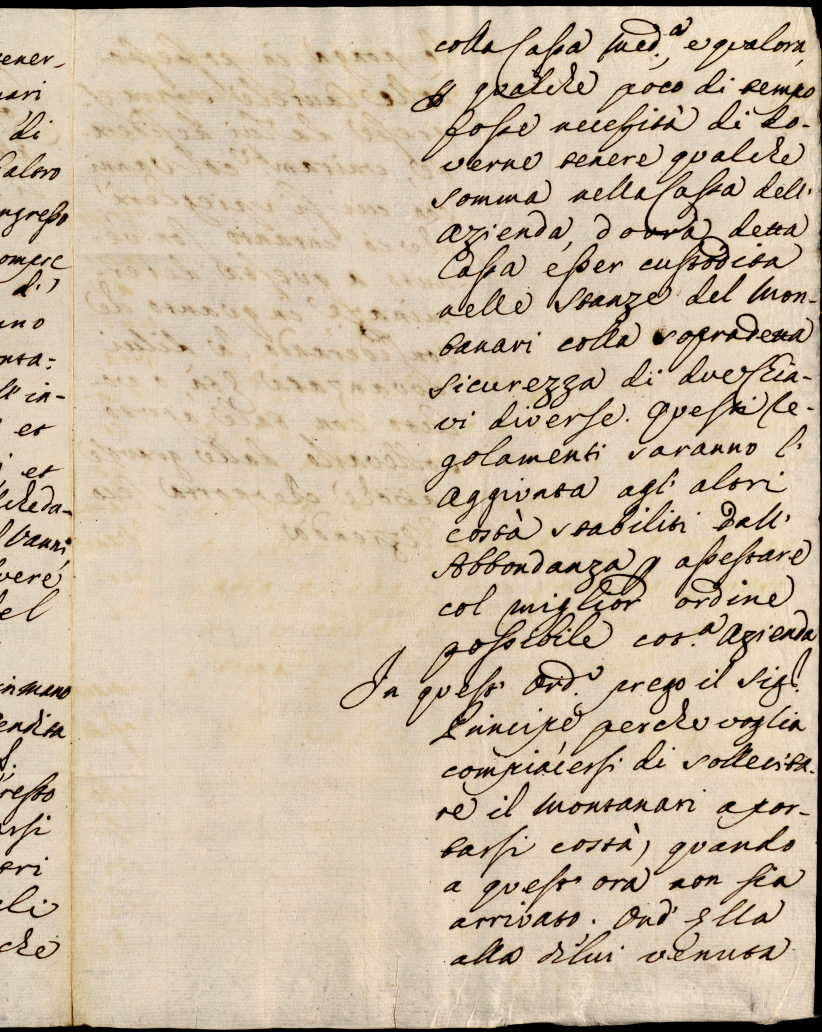 ener-
nari
di
l'altro
ngresso
d'
nno
nta:
ll' in-
et
et
cheda-
Vanni
vere
del
in mano
endita
resto
arsi
che
colla Cassa med.ª, e qualora,
p qualche poco di tempo
fosse necessità di do-
verne tenere qualche
somma nella Cassa dell'
Azienda, dovrà detta
Cassa esser custodita
nelle stanze del Mon-
tanari colla sopradetta
sicurezza di due Chia-
vi diverse. Questi Re-
golamenti saranno l'
Aggiunta agl' altri
costà stabiliti Dall'
Abbondanza p assestare
col miglior ordine
possibile cot.ª Azienda
In quest' Ord.º prego il Sig.
Principe perche voglia
compiacersi di sollecita-
re il Montanari a por-
tarsi costà, quando
a quest' ora non sia
arrivato. Ond' Ella
alla di lui venuta